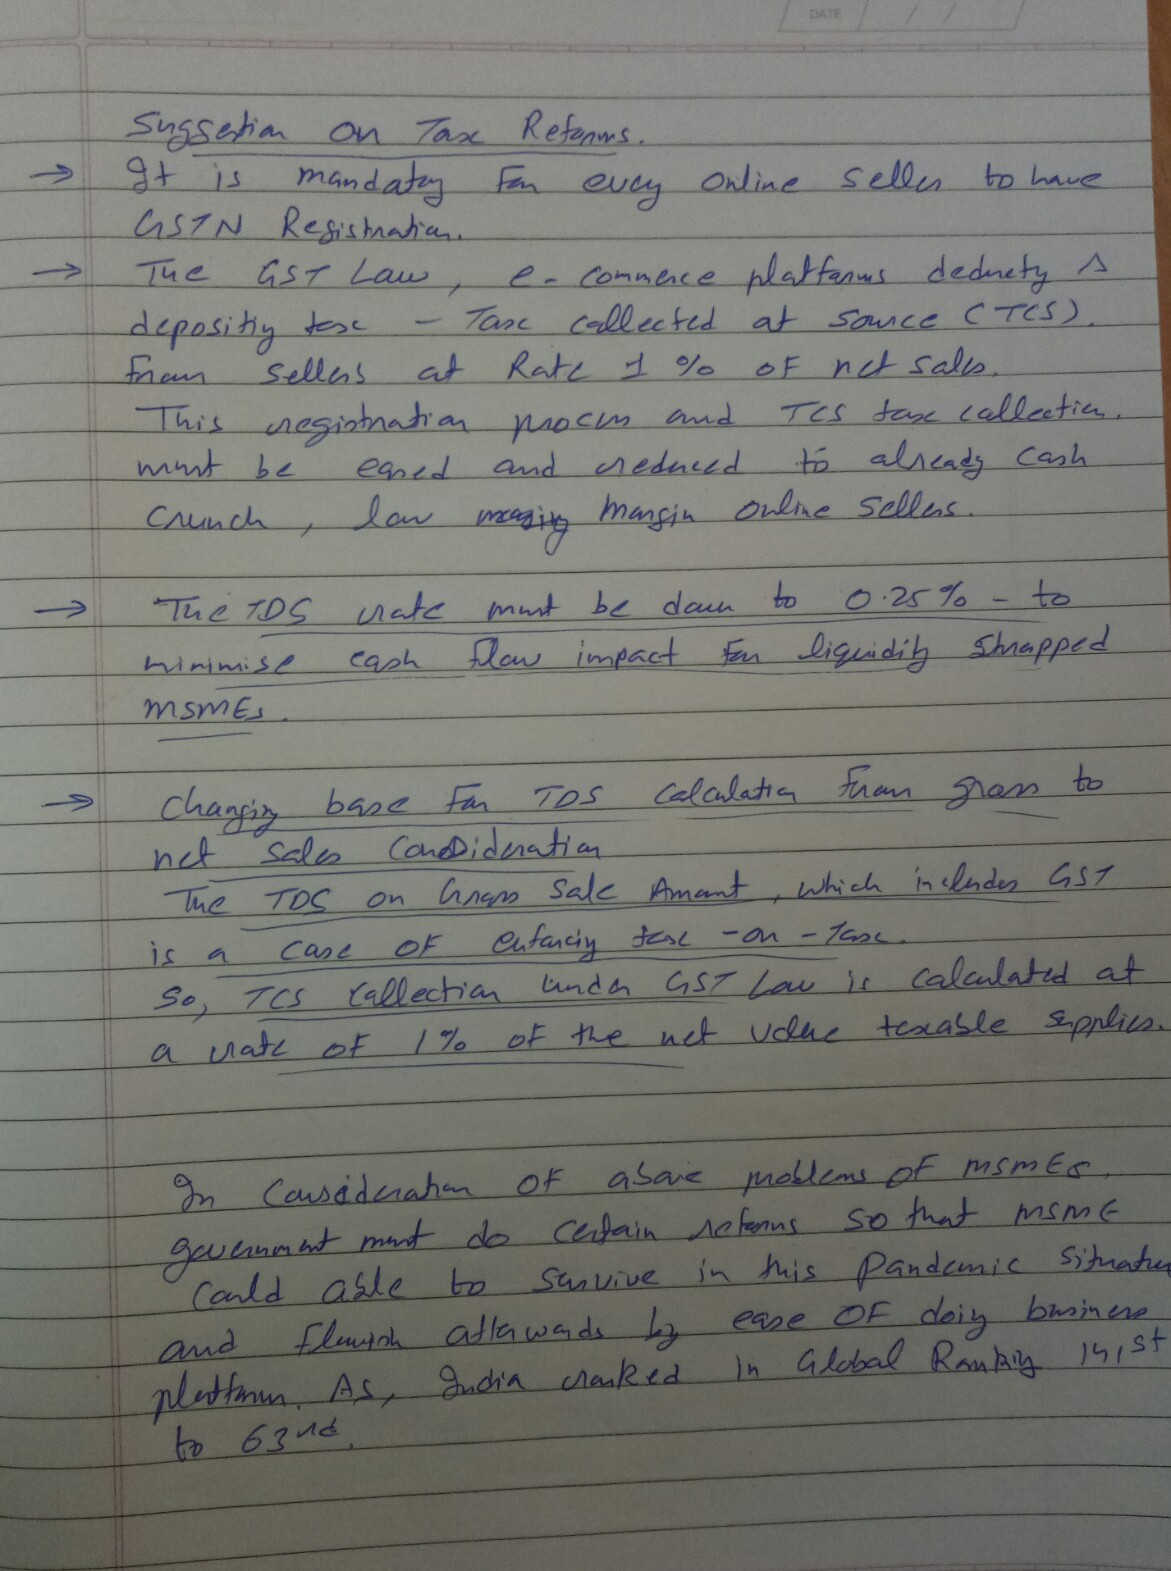 DATE / /
Suggestion on Tax Reforms.
→ It is mandatory For every online seller to have
GSTN Registration.
→ The GST Law, e-commerce platforms deducty &
depositiy tax - Tax collected at source (TCS).
from sellers at Rate 1 % of net sales.
This registration process and TCS tax collection.
must be eased and reduced to already cash
crunch, low margin online sellers.
→ The TDS rate must be down to 0.25% - to
minimise cash flow impact for liquidity strapped
MSMEs.
→ Changing base for TDS calculation from gross to
net sales consideration
The TDS on Gross Sale Amount, which includes GST
is a case of enforciy tax-on-Tax.
So, TCS collection under GST Law is calculated at
a rate of 1% of the net value taxable supplies.
In consideration of above problems of MSMEs,
government must do certain reforms so that MSME
could able to survive in this Pandemic situation
and flourish afterwards by ease of doiy business
platform. As, India ranked in Global Rankiy 141st
to 63rd.